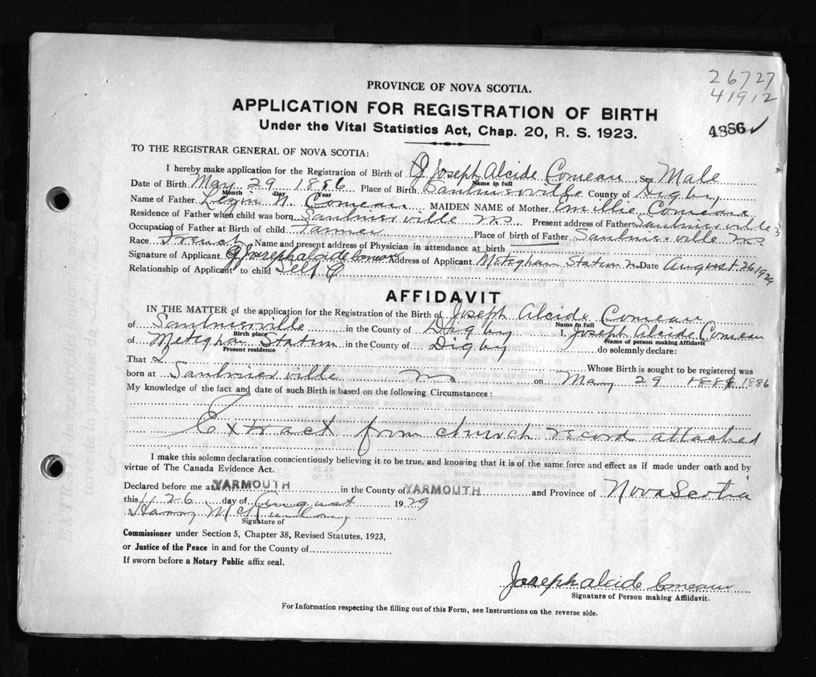 26727
41912
4886 ✓
PROVINCE OF NOVA SCOTIA.
APPLICATION FOR REGISTRATION OF BIRTH
Under the Vital Statistics Act, Chap. 20, R. S. 1923.
TO THE REGISTRAR GENERAL OF NOVA SCOTIA:
I hereby make application for the Registration of Birth of Joseph Alcide Comeau Sex Male
Name in full
Date of Birth May 29 1886 Place of Birth Saulnierville County of Digby
Month Day Year
Name of Father N. Comeau MAIDEN NAME of Mother Emillie Comeau
Residence of Father when child was born Saulnierville NS Present address of Father Saulnierville
Occupation of Father at Birth of child Farmer Place of birth of Father Saulnierville NS
Race French Name and present address of Physician in attendance at birth
Signature of Applicant Joseph Alcide Comeau Address of Applicant Meteghan Station Date August 26 1929
Relationship of Applicant to child Self
AFFIDAVIT
IN THE MATTER of the application for the Registration of the Birth of Joseph Alcide Comeau
Name in full
of Saulnierville in the County of Digby I, Joseph Alcide Comeau
Birth place Name of person making Affidavit
of Meteghan Station in the County of Digby do solemnly declare:
Present residence
That I Whose Birth is sought to be registered was
born at Saulnierville NS on May 29 1886 1886
My knowledge of the fact and date of such Birth is based on the following Circumstances:
Extract from church record attached
I make this solemn declaration conscientiously believing it to be true, and knowing that it is of the same force and effect as if made under oath and by
virtue of The Canada Evidence Act.
Declared before me at YARMOUTH in the County of YARMOUTH and Province of Nova Scotia
this 26 day of August 1929
Harry
Signature of
Commissioner under Section 5, Chapter 38, Revised Statutes, 1923,
or Justice of the Peace in and for the County of
If sworn before a Notary Public affix seal.
Joseph Alcide Comeau
Signature of Person making Affidavit.
For Information respecting the filling out of this Form, see Instructions on the reverse side.